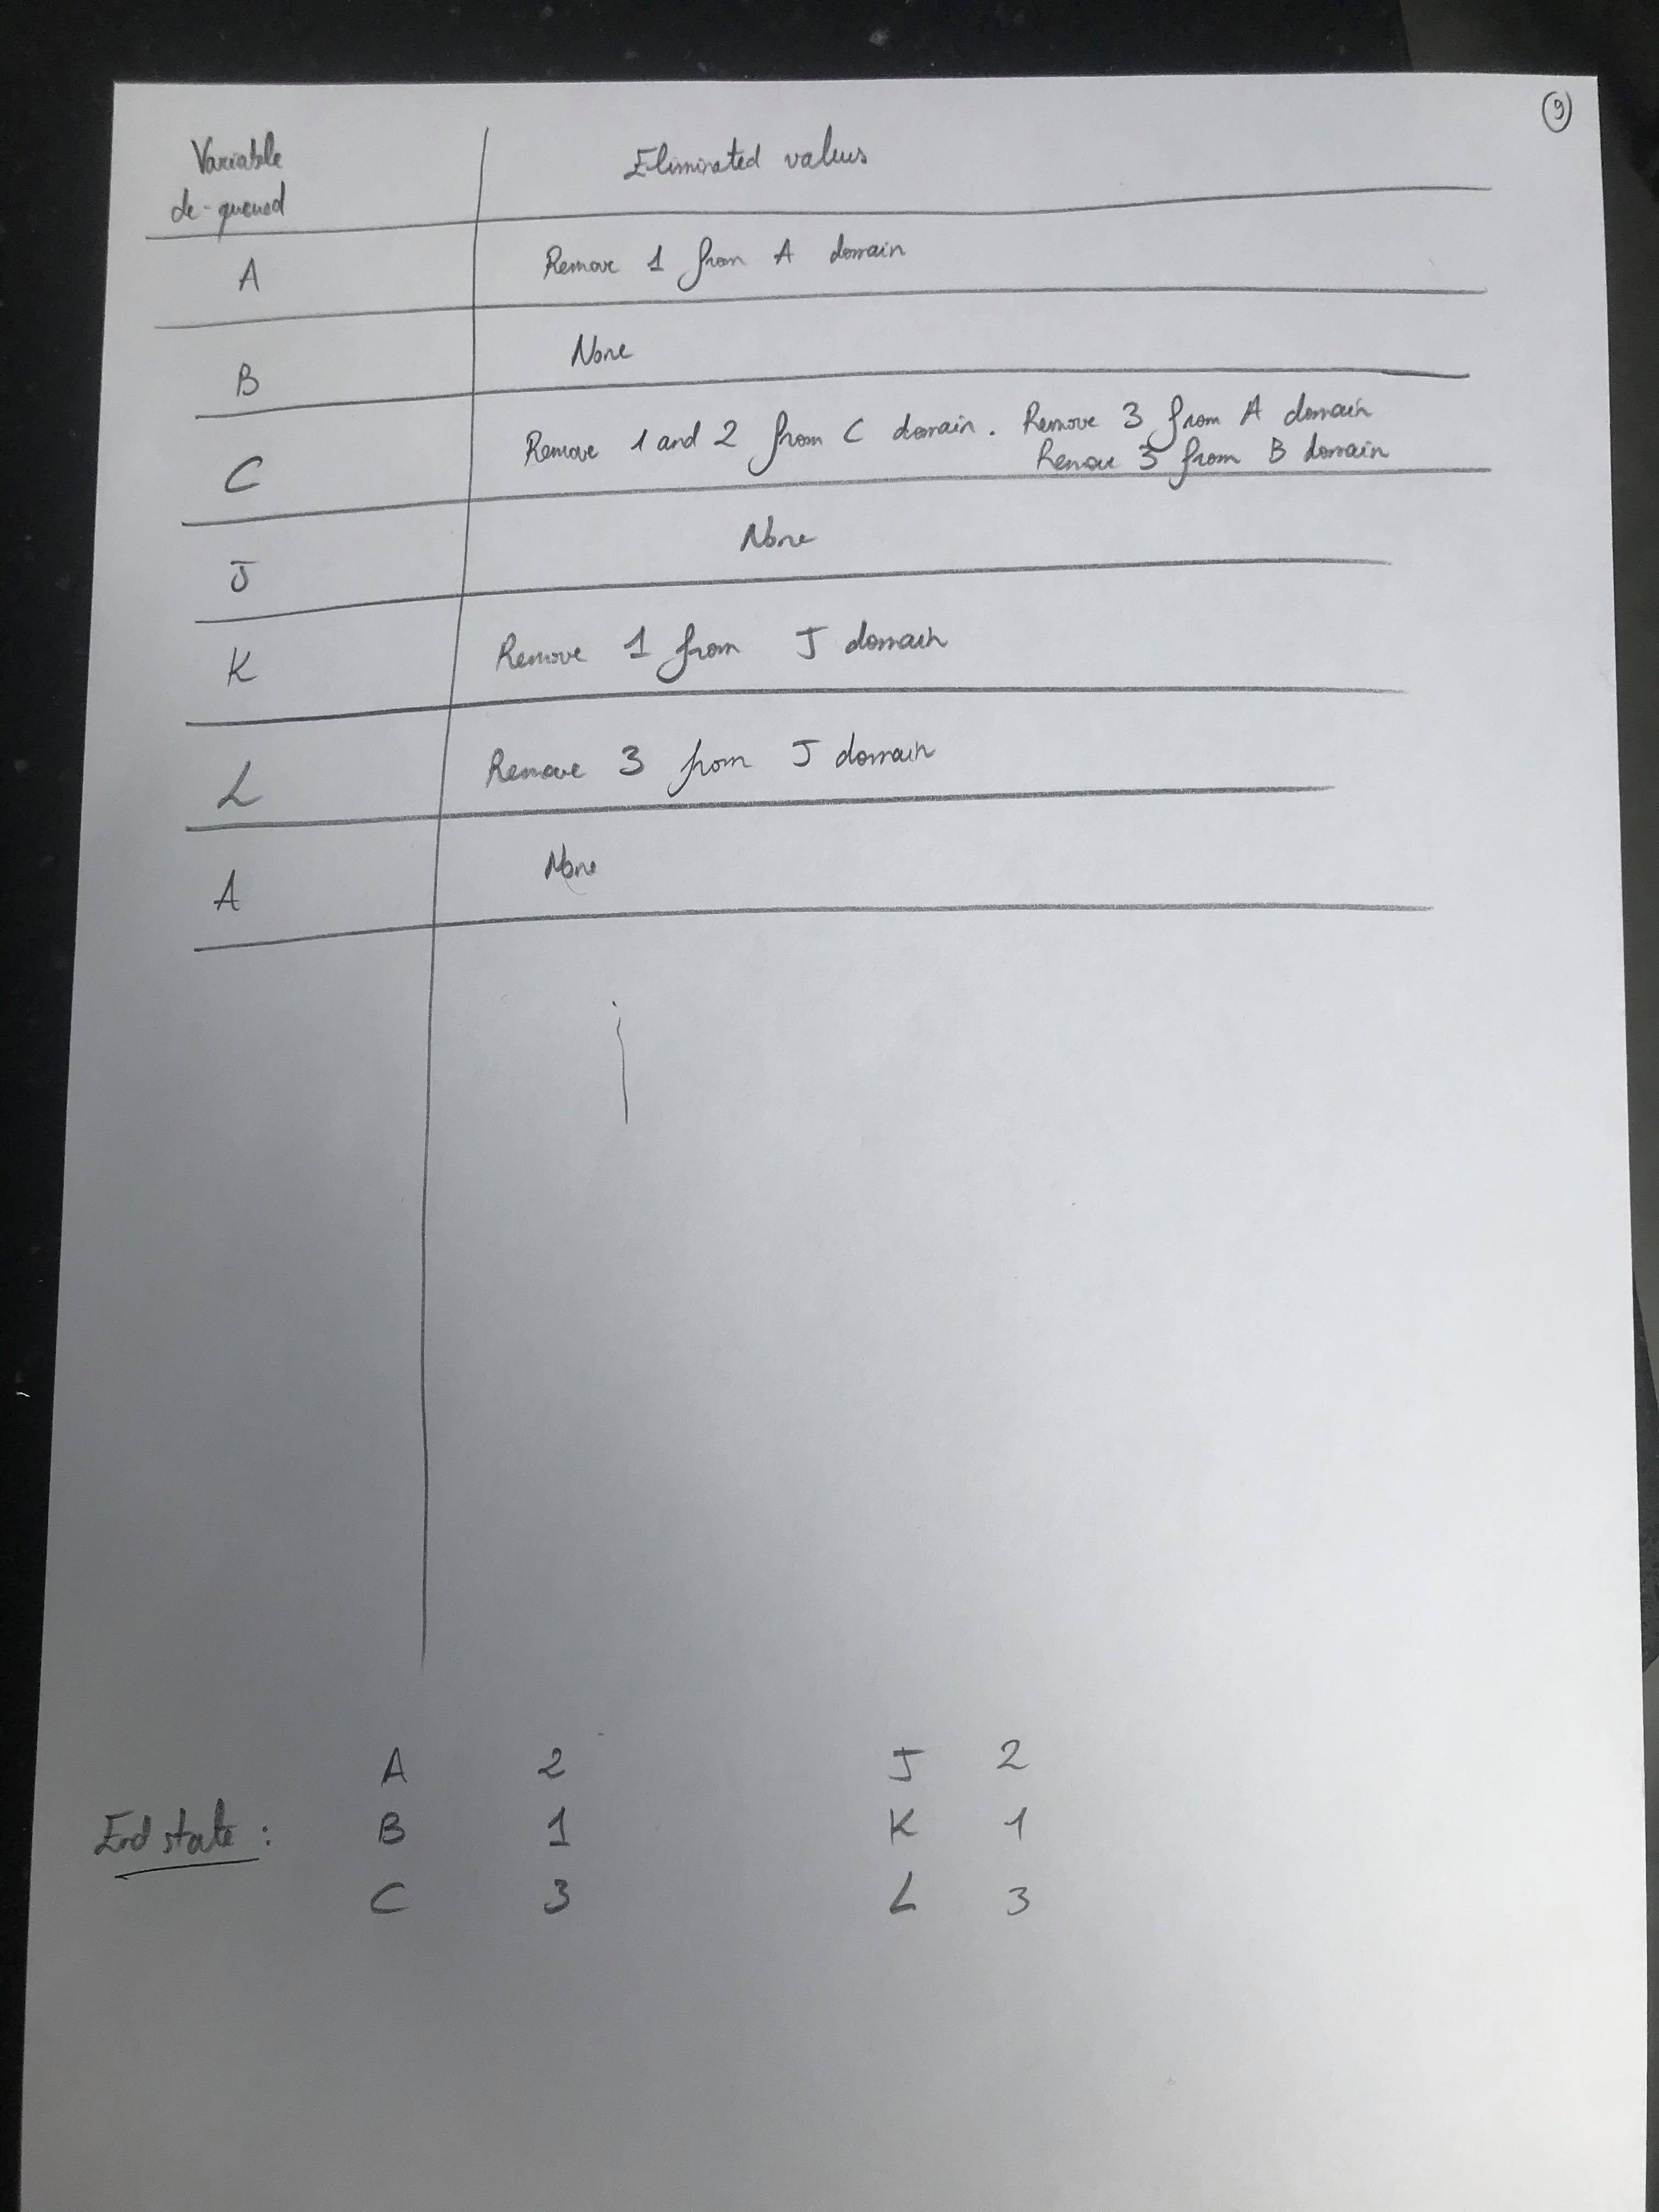 9
Variable
de-queued
Eliminated values
A
Remove 1 from A domain
B
None
C
Remove 1 and 2 from C domain. Remove 3 from A domain
Remove 3 from B domain
J
None
K
Remove 1 from J domain
L
Remove 3 from J domain
A
None
End state:
A 2
B 1
C 3
J 2
K 1
L 3